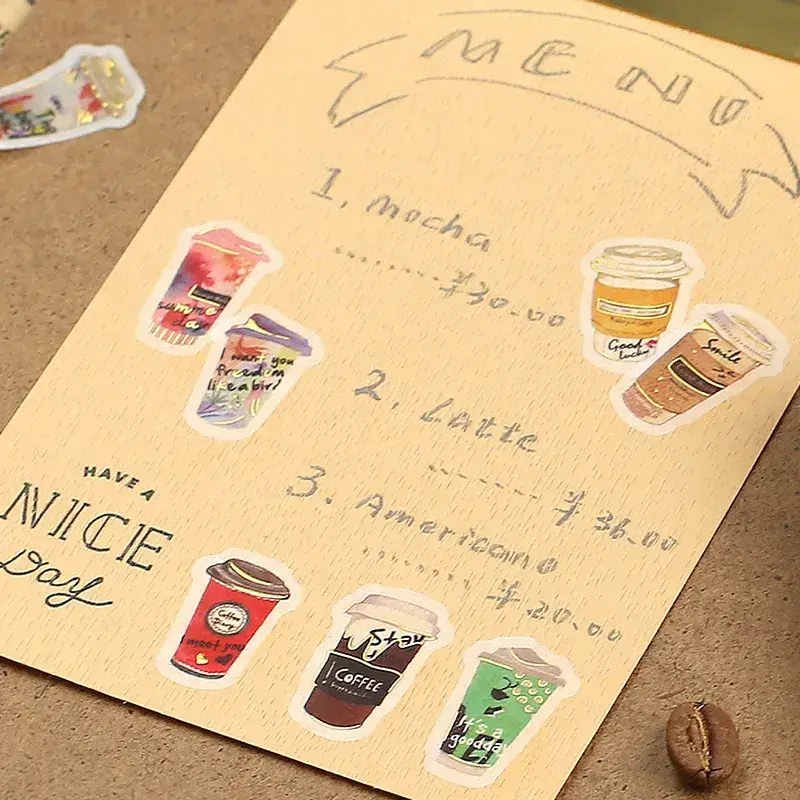 MENU
1, mocha
........¥30.00
summer
day
I want you
freedom
like a bird
Good
lucky
Smile
2, Latte
........¥36.00
3. Americano
........¥20.00
HAVE A
NICE
Day
Coffee
Diary
I meet you
COFFEE
It's a
goodday